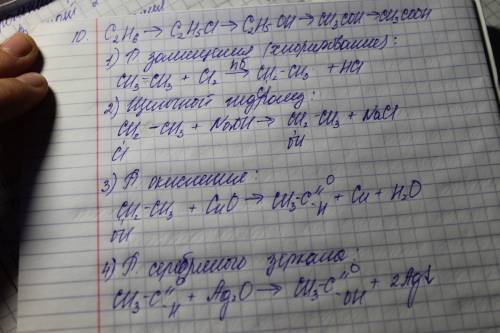 10. C₂H₆ → C₂H₅Cl → C₂H₅OH → CH₃COH → CH₃COOH
1) Р. замещения (хлорирование):
CH₃-CH₃ + Cl₂ hν→ CH₂-CH₃ + HCl
Cl
2) Щелочной гидролиз:
CH₂-CH₃ + NaOH → CH₂-CH₃ + NaCl
Cl OH
3) Р. окисления:
CH₂-CH₃ + CuO → CH₃-C=O-H + Cu + H₂O
OH
4) Р. серебряного зеркала:
CH₃-C=O-H + Ag₂O → CH₃-C=O-OH + 2Ag↓